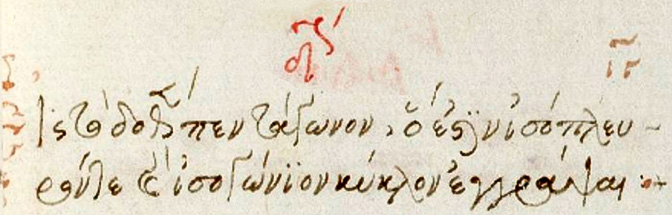 ιγ
ἰς τὸ δοθὲν πεντάγωνον, ὅ ἐστὶν ἰσόπλευ-
ρόν τε καὶ ἰσογώνϊον κύκλον ἐγγράψαι :-